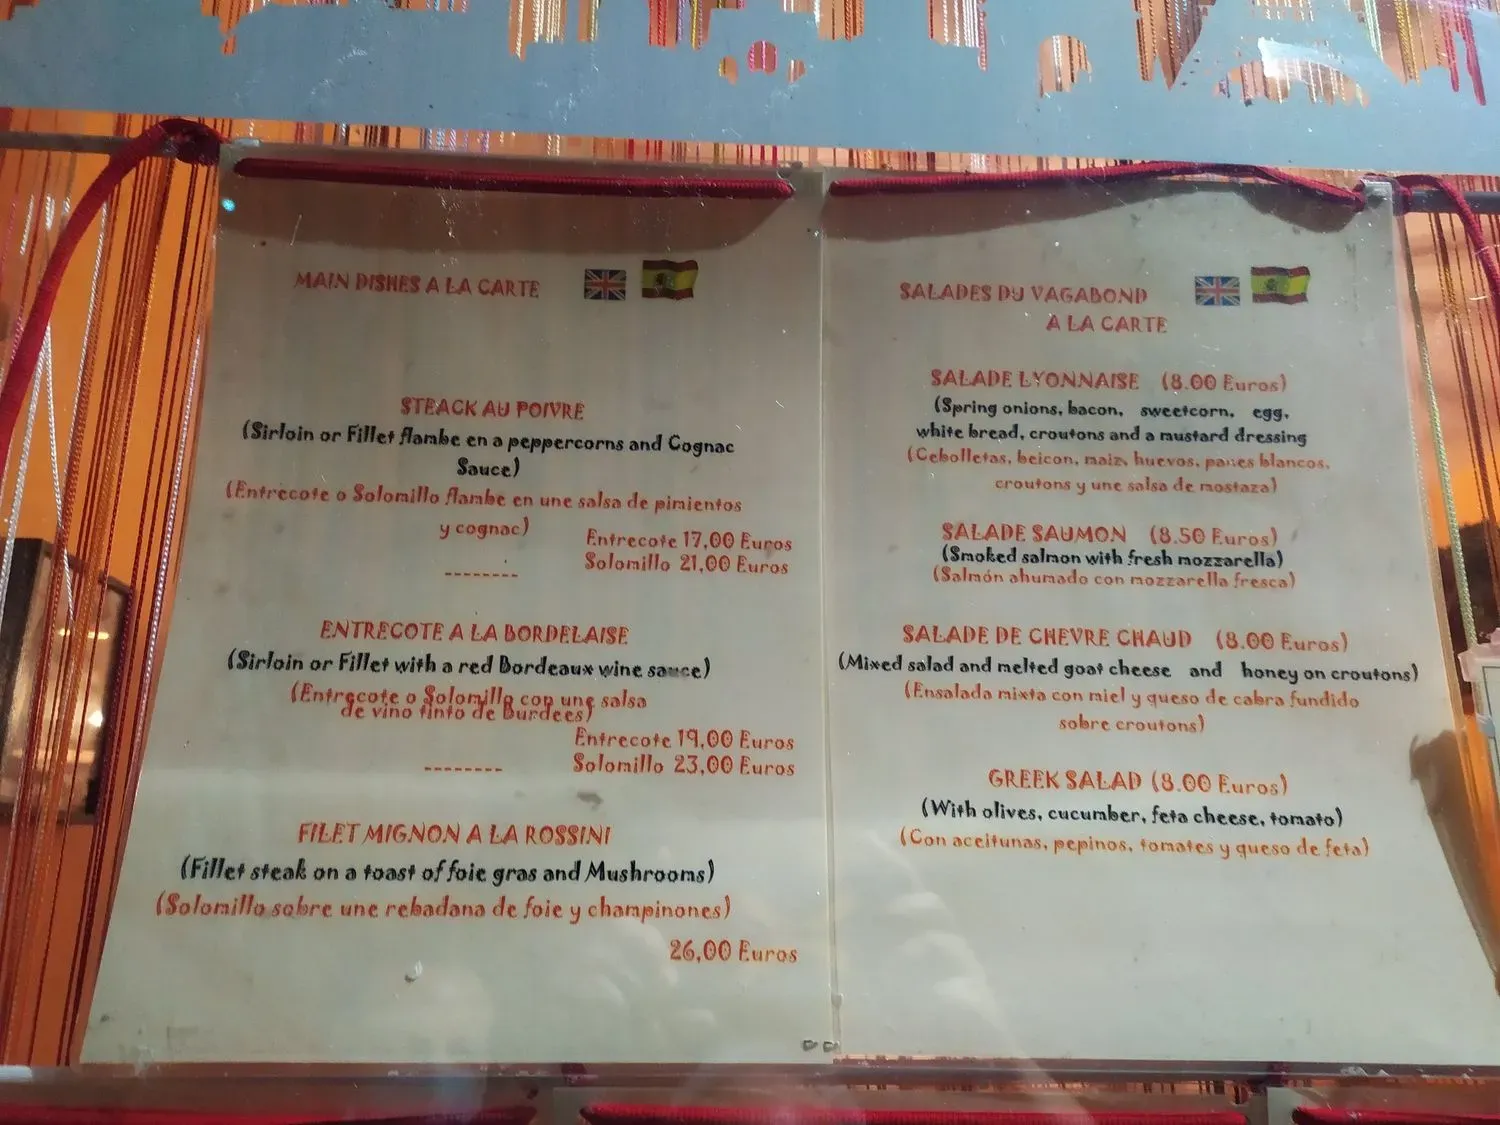 MAIN DISHES A LA CARTE
STEACK AU POIVRE
(Sirloin or Fillet flambe en a peppercorns and Cognac
Sauce)
(Entrecote o Solomillo flambe en une salsa de pimientos
y cognac)
Entrecote 17,00 Euros
Solomillo 21,00 Euros
--------
ENTRECOTE A LA BORDELAISE
(Sirloin or Fillet with a red Bordeaux wine sauce)
(Entrecote o Solomillo con une salsa
de vino tinto de Burdees)
Entrecote 19,00 Euros
Solomillo 23,00 Euros
--------
FILET MIGNON A LA ROSSINI
(Fillet steak on a toast of foie gras and Mushrooms)
(Solomillo sobre une rebadana de foie y champinones)
26,00 Euros
SALADES DU VAGABOND
A LA CARTE
SALADE LYONNAISE (8.00 Euros)
(Spring onions, bacon, sweetcorn, egg,
white bread, croutons and a mustard dressing
(Cebolletas, beicon, maiz, huevos, panes blancos,
croutons y une salsa de mostaza)
SALADE SAUMON (8.50 Euros)
(Smoked salmon with fresh mozzarella)
(Salmón ahumado con mozzarella fresca)
SALADE DE CHEVRE CHAUD (8.00 Euros)
(Mixed salad and melted goat cheese and honey on croutons)
(Ensalada mixta con miel y queso de cabra fundido
sobre croutons)
GREEK SALAD (8.00 Euros)
(With olives, cucumber, feta cheese, tomato)
(Con aceitunas, pepinos, tomates y queso de feta)